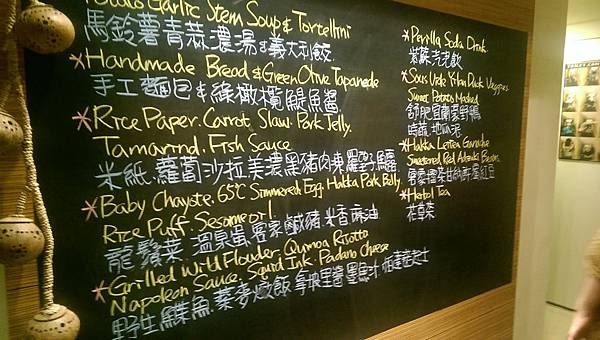 Garlic Stem Soup & Tortellini
馬鈴薯青蒜濃湯&義大利餃
*Handmade Bread & Green Olive Tapanede
手工麵包&綠橄欖鯷魚醬
*Rice Paper. Carrot Slaw. Pork Jelly.
Tamarind. Fish Sauce
米紙.蘿蔔沙拉.美濃黑豬肉凍.羅望子.魚露
*Baby Chayote. 65°C Simmered Egg. Hakka Pork Belly
Rice Puff. Sesame Oil.
龍鬚菜.溫泉蛋.客家鹹豬.米香.麻油
*Grilled Wild Flounder. Quinoa Risotto
Napoleon Sauce. Squid Ink. Padano Cheese
野生鰈魚.藜麥燉飯.拿坡里醬.墨魚汁.帕達諾起士
*Perilla Soda Drink
紫蘇氣泡飲
*Sous Vide Yilan Duck. Veggies
Sweet Potato Mashed
舒肥宜蘭櫻桃鴨
時蔬.地瓜泥
*Hakka Leitea
Sweetened Red Adzuki Bean
客家擂茶
*Herbal Tea
花草茶